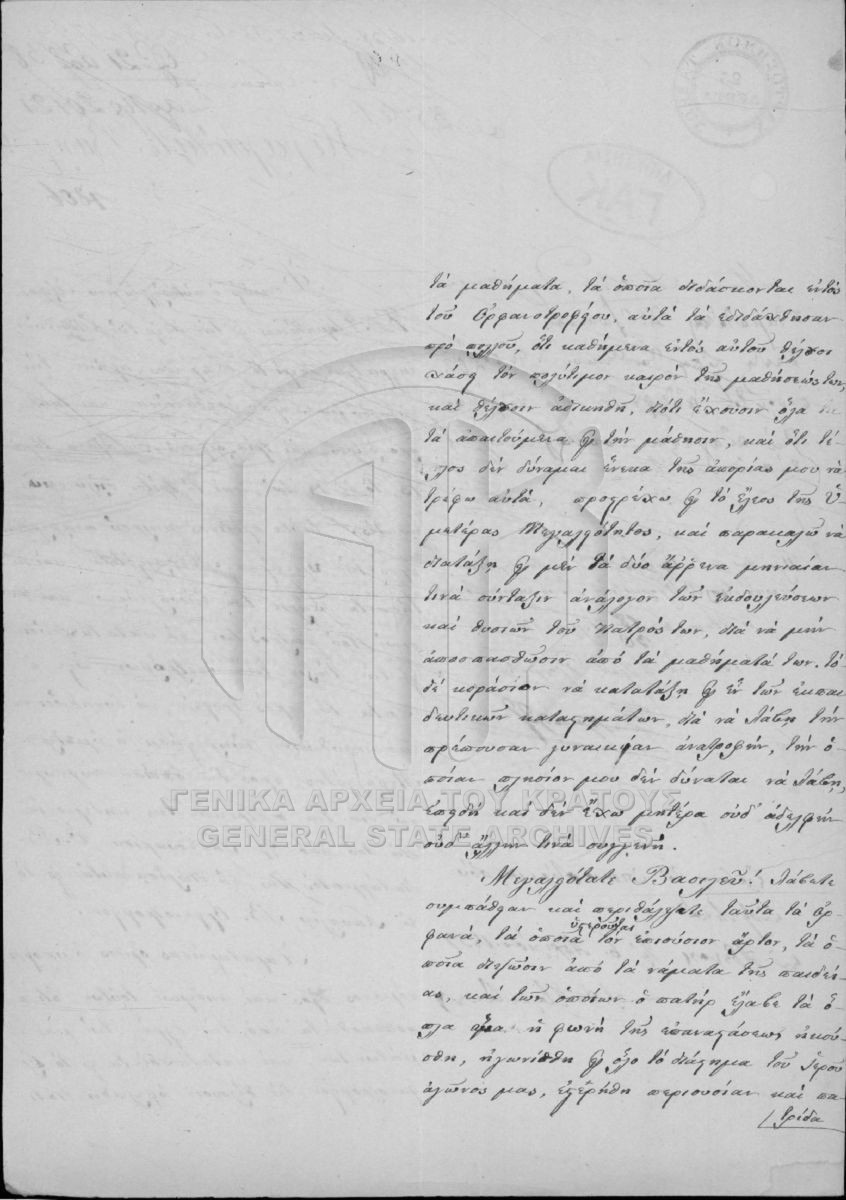 τὰ μαθήματα, τὰ ὁποῖα διδάσκονται ἐντὸς
τοῦ Ὀρφανοτροφείου, αὐτὰ τὰ ἐδιδάχθησαν
πρὸ πολλοῦ, ὅτι καθήμενα ἐντὸς αὐτοῦ θέλουσι
χάσῃ τὸν πολύτιμον καιρὸν τῆς μαθήσεώς των,
καὶ θέλουσιν ἀδικηθῆ, διότι ἔχουσιν ὅλα
τὰ ἀπαιτούμενα διὰ τὴν μάθησιν, καὶ ὅτι τέ-
λος δὲν δύναμαι ἕνεκα τῆς ἀπορίας μου νὰ
τρέφω αὐτά, προστρέχω εἰς τὸ ἔλεος τῆς Ὑ-
μετέρας Μεγαλειότητος, καὶ παρακαλῶ νὰ
διατάξῃ διὰ μὲν τὰ δύο ἄρρενα μηνιαίαν
τινὰ σύνταξιν ἀνάλογον τῶν ἐκδουλεύσεων
καὶ θυσιῶν τοῦ Πατρός των, διὰ νὰ μὴν
ἀποσπασθῶσιν ἀπὸ τὰ μαθήματά των. τὸ
δὲ κοράσιον νὰ κατατάξῃ εἰς ἓν τῶν ἐκπαι
δευτικῶν καταστημάτων, διὰ νὰ λάβῃ τὴν
πρέπουσαν γυναικείαν ἀνατροφήν, τὴν ὁ-
ποίαν πλησίον μου δὲν δύναται νὰ λάβῃ,
ἐπειδὴ καὶ δὲν ἔχω μητέρα οὐδ' ἀδελφὴν
οὐδ' ἄλλην τινὰ συγγενῆ.
Μεγαλειότατε Βασιλεῦ! Λάβετε
συμπάθειαν καὶ περιθάλψατε ταῦτα τὰ ὀρ-
φανά, τὰ ὁποῖα ὑστεροῦνται τὸν ἐπιούσιον ἄρτον, τὰ ὁ-
ποῖα διψῶσιν ἀπὸ τὰ νάματα τῆς παιδεί-
ας, καὶ τῶν ὁποίων ὁ πατὴρ ἔλαβε τὰ ὅ-
πλα ἅμα ἡ φωνὴ τῆς ἐπαναστάσεως ἠκού-
σθη, ἠγωνίσθη εἰς ὅλο τὸ διάστημα τοῦ Ἱεροῦ
ἀγῶνος μας, ἐστερήθη περιουσίαν καὶ πα-
τρίδα
ΓΕΝΙΚΑ ΑΡΧΕΙΑ ΤΟΥ ΚΡΑΤΟΥΣ
GENERAL STATE ARCHIVES